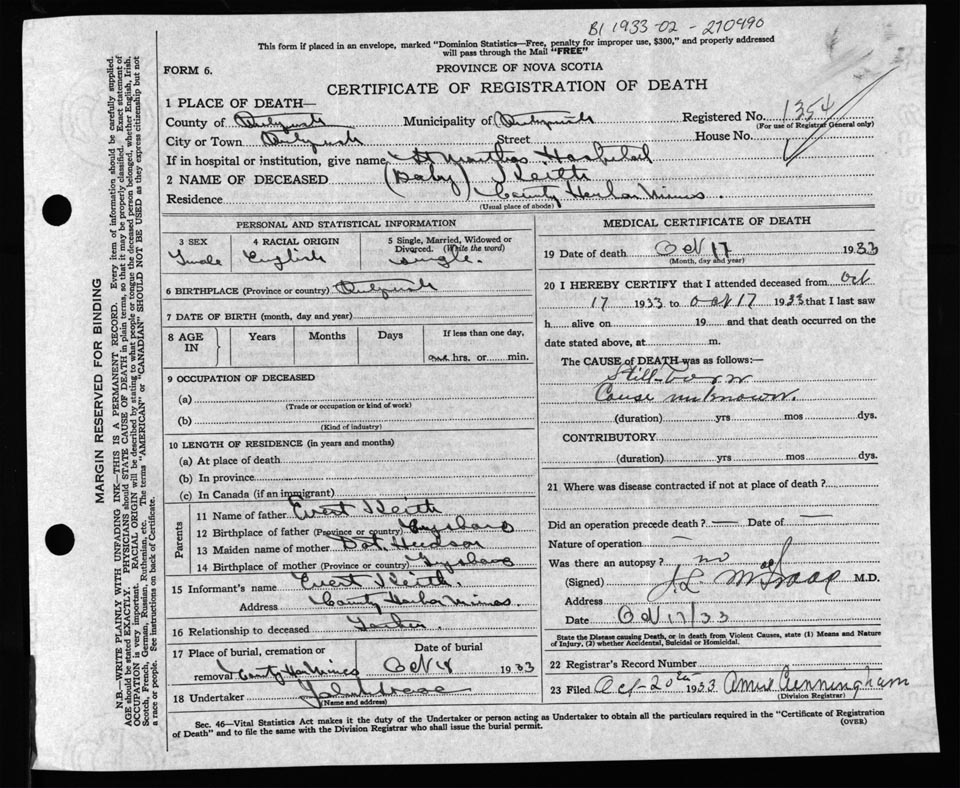 B1 1933-02-270490
This form if placed in an envelope, marked "Dominion Statistics—Free, penalty for improper use, $300," and properly addressed
will pass through the Mail "FREE"
FORM 6.
PROVINCE OF NOVA SCOTIA
CERTIFICATE OF REGISTRATION OF DEATH
1 PLACE OF DEATH—
County of
Municipality of
Registered No. 1354
(For use of Registrar General only)
City or Town
Street
House No.
If in hospital or institution, give name St Marthas Hospital
2 NAME OF DECEASED (Baby) Keith
Residence County Harbor Mines
(Usual place of abode)
PERSONAL AND STATISTICAL INFORMATION
3 SEX
4 RACIAL ORIGIN English
5 Single, Married, Widowed or Divorced. (Write the word) Single.
6 BIRTHPLACE (Province or country)
7 DATE OF BIRTH (month, day and year)
8 AGE IN
Years
Months
Days
If less than one day,
hrs. or min.
9 OCCUPATION OF DECEASED
(a)
(Trade or occupation or kind of work)
(b)
(Kind of industry)
10 LENGTH OF RESIDENCE (in years and months)
(a) At place of death
(b) In province
(c) In Canada (if an immigrant)
Parents
11 Name of father Evert Keith
12 Birthplace of father (Province or country) Guysboro
13 Maiden name of mother Dot Hudson
14 Birthplace of mother (Province or country) Guysboro
15 Informant's name Evert Keith.
Address County Harbor Mines.
16 Relationship to deceased Father.
17 Place of burial, cremation or removal County Har Mines
Date of burial Oct 18 1933
18 Undertaker
(Name and address)
MEDICAL CERTIFICATE OF DEATH
19 Date of death Oct 17 1933
(Month, day and year)
20 I HEREBY CERTIFY that I attended deceased from Oct
17 1933 to Oct 17 1933 that I last saw
h alive on 19 and that death occurred on the
date stated above, at m.
The CAUSE of DEATH was as follows:—
Still-born
Cause unknown.
(duration) yrs mos dys.
CONTRIBUTORY
(duration) yrs mos dys.
21 Where was disease contracted if not at place of death?
Did an operation precede death? — Date of —
Nature of operation —
Was there an autopsy? no
(Signed) J.L. M.D.
Address
Date Oct 17/33
State the Disease causing Death, or in death from Violent Causes, state (1) Means and Nature
of Injury, (2) whether Accidental, Suicidal or Homicidal.
22 Registrar's Record Number
23 Filed Oct 20th 1933. Annie Cunningham
(Division Registrar)
Sec. 46—Vital Statistics Act makes it the duty of the Undertaker or person acting as Undertaker to obtain all the particulars required in the "Certificate of Registration
of Death" and to file the same with the Division Registrar who shall issue the burial permit.
(OVER)
MARGIN RESERVED FOR BINDING
N.B.—WRITE PLAINLY WITH UNFADING INK—THIS IS A PERMANENT RECORD. Every item of information should be carefully supplied.
AGE should be stated EXACTLY. PHYSICIANS should STATE CAUSE OF DEATH in plain terms, so that it may be properly classified. Exact statement of
OCCUPATION is very important. RACIAL ORIGIN will be described by stating to what people or tongue the deceased person belonged, whether English, Irish,
Scotch, French, German, Russian, Ruthenian, etc. The terms "AMERICAN" or "CANADIAN" SHOULD NOT BE USED as they express citizenship but not
a race or people. See instructions on back of Certificate.